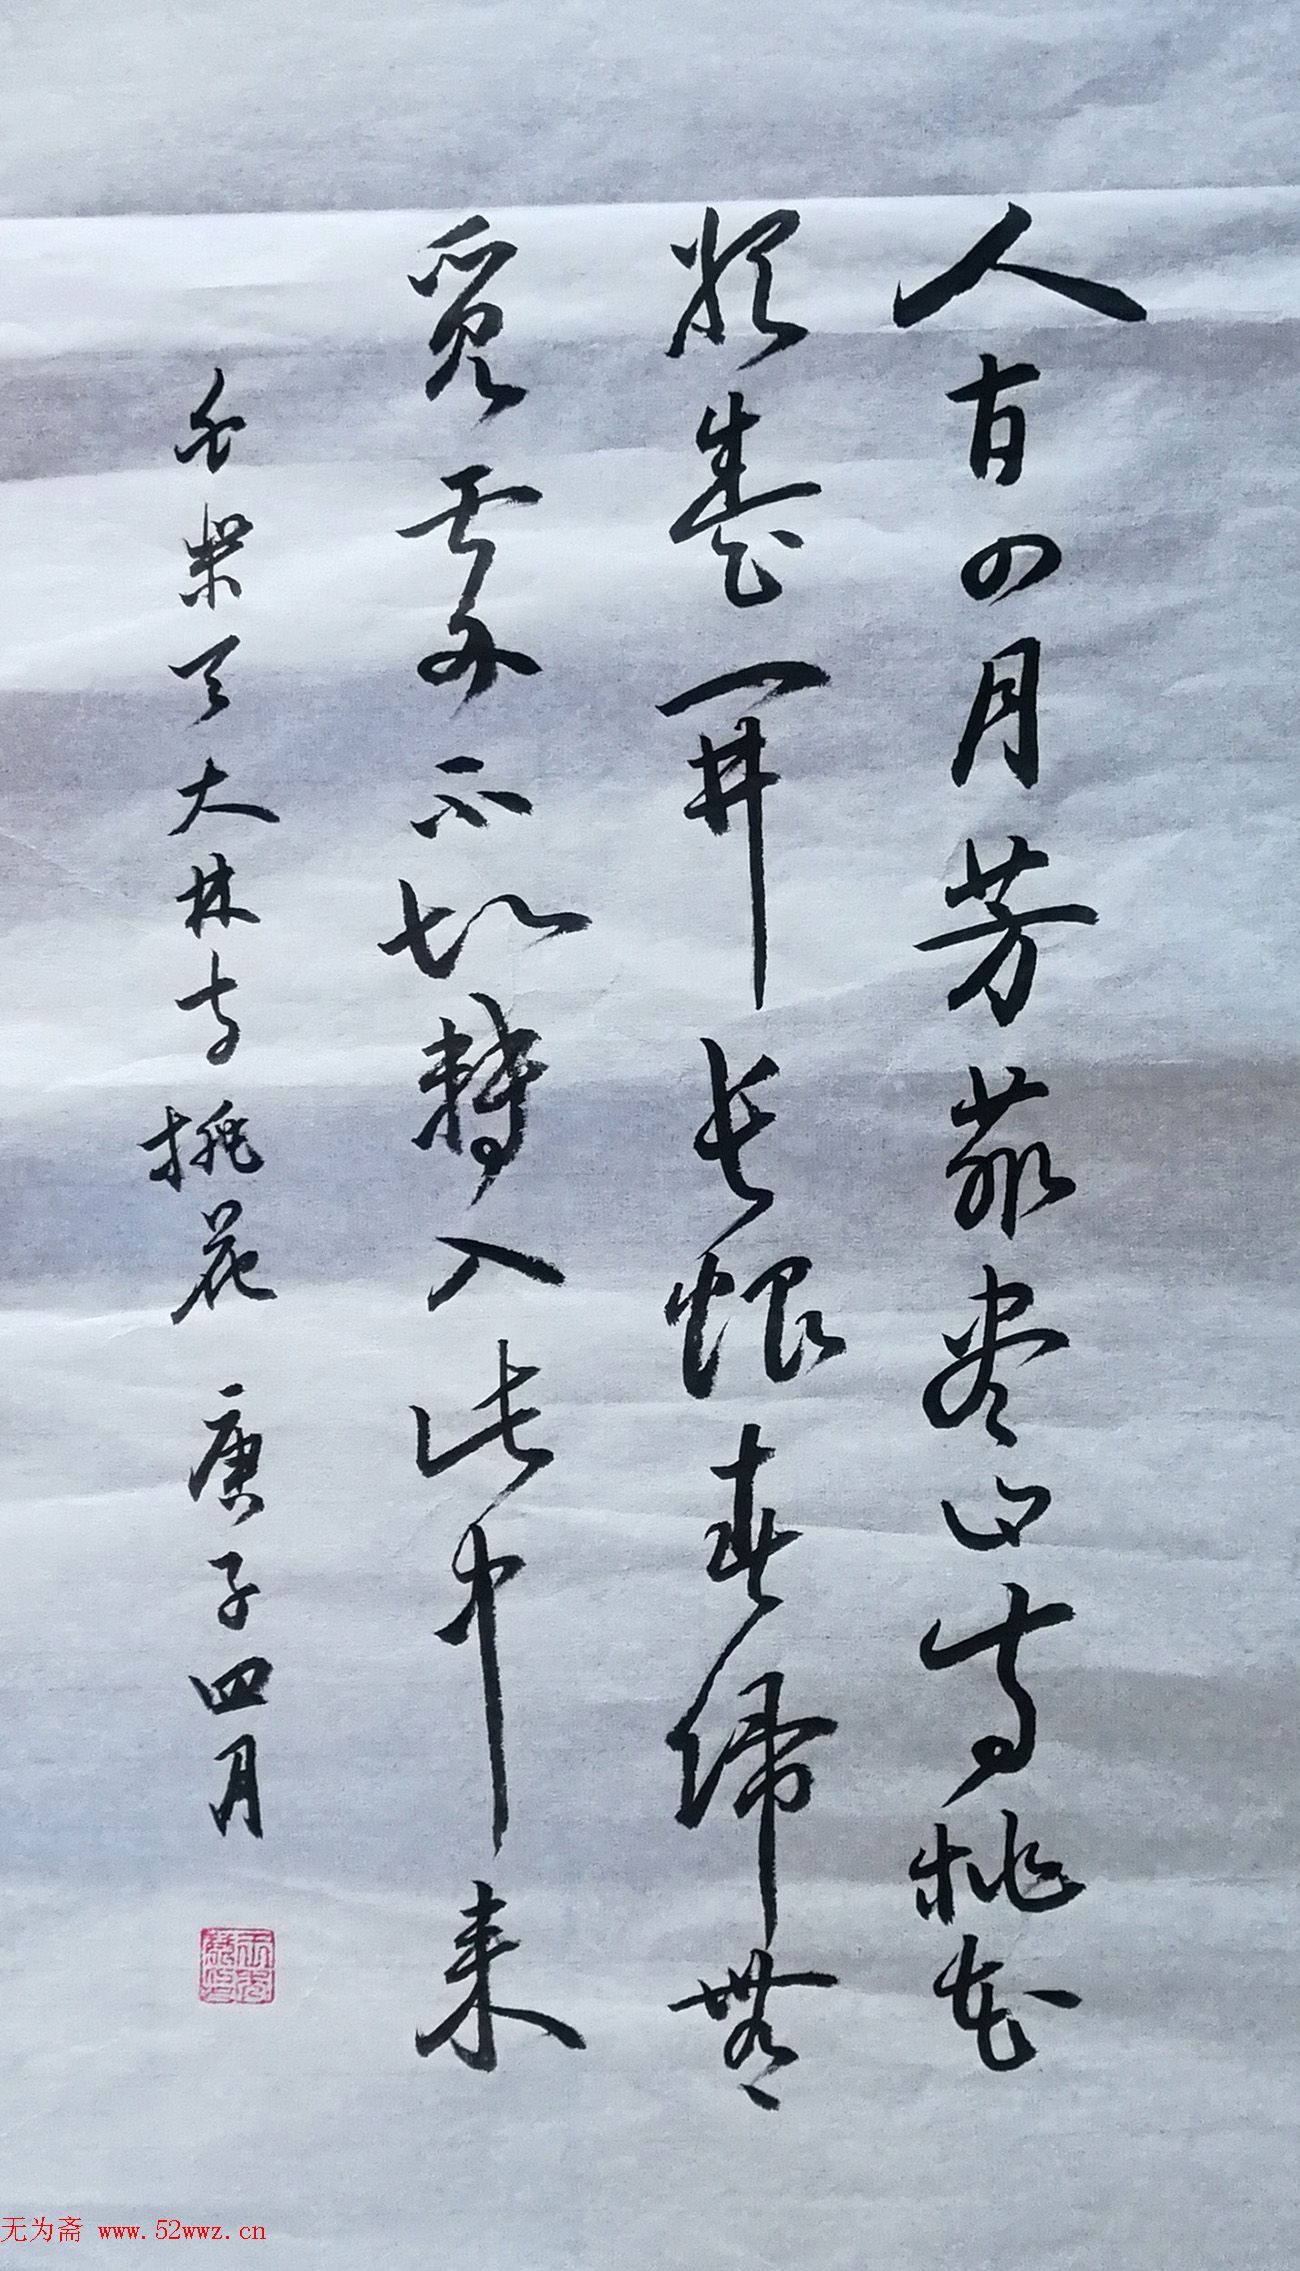 人有四月芳菲尽山寺桃花
始盛開长恨春歸無
覓處不知轉入此中来
白樂天大林寺桃花 庚子四月
无为斋 www.52wwz.cn